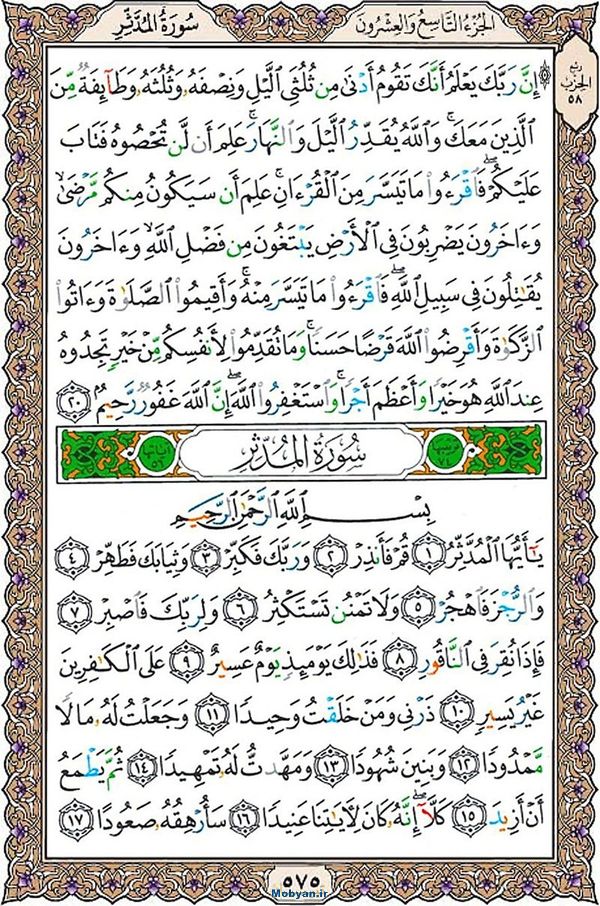 الجزء التاسع والعشرون
سورة المدثر
ربع
الحزب
٥٨
۞ إِنَّ رَبَّكَ يَعْلَمُ أَنَّكَ تَقُومُ أَدْنَىٰ مِن ثُلُثَيِ ٱلَّيْلِ وَنِصْفَهُۥ وَثُلُثَهُۥ وَطَآئِفَةٌ مِّنَ
ٱلَّذِينَ مَعَكَ ۚ وَٱللَّهُ يُقَدِّرُ ٱلَّيْلَ وَٱلنَّهَارَ ۚ عَلِمَ أَن لَّن تُحْصُوهُ فَتَابَ
عَلَيْكُمْ ۖ فَٱقْرَءُوا۟ مَا تَيَسَّرَ مِنَ ٱلْقُرْءَانِ ۚ عَلِمَ أَن سَيَكُونُ مِنكُم مَّرْضَىٰ ۙ
وَءَاخَرُونَ يَضْرِبُونَ فِى ٱلْأَرْضِ يَبْتَغُونَ مِن فَضْلِ ٱللَّهِ ۙ وَءَاخَرُونَ
يُقَٰتِلُونَ فِى سَبِيلِ ٱللَّهِ ۖ فَٱقْرَءُوا۟ مَا تَيَسَّرَ مِنْهُ ۚ وَأَقِيمُوا۟ ٱلصَّلَوٰةَ وَءَاتُوا۟
ٱلزَّكَوٰةَ وَأَقْرِضُوا۟ ٱللَّهَ قَرْضًا حَسَنًا ۚ وَمَا تُقَدِّمُوا۟ لِأَنفُسِكُم مِّنْ خَيْرٍ تَجِدُوهُ
عِندَ ٱللَّهِ هُوَ خَيْرًا وَأَعْظَمَ أَجْرًا ۚ وَٱسْتَغْفِرُوا۟ ٱللَّهَ ۖ إِنَّ ٱللَّهَ غَفُورٌ رَّحِيمٌۢ ٢٠
ترتيبها ٧٤ سورة المدثر آياتها ٥٦
بِسْمِ ٱللَّهِ ٱلرَّحْمَٰنِ ٱلرَّحِيمِ
يَٰٓأَيُّهَا ٱلْمُدَّثِّرُ ١ قُمْ فَأَنذِرْ ٢ وَرَبَّكَ فَكَبِّرْ ٣ وَثِيَابَكَ فَطَهِّرْ ٤
وَٱلرُّجْزَ فَٱهْجُرْ ٥ وَلَا تَمْنُن تَسْتَكْثِرُ ٦ وَلِرَبِّكَ فَٱصْبِرْ ٧
فَإِذَا نُقِرَ فِى ٱلنَّاقُورِ ٨ فَذَٰلِكَ يَوْمَئِذٍ يَوْمٌ عَسِيرٌ ٩ عَلَى ٱلْكَٰفِرِينَ
غَيْرُ يَسِيرٍ ١٠ ذَرْنِى وَمَنْ خَلَقْتُ وَحِيدًا ١١ وَجَعَلْتُ لَهُۥ مَالًا
مَّمْدُودًا ١٢ وَبَنِينَ شُهُودًا ١٣ وَمَهَّدتُّ لَهُۥ تَمْهِيدًا ١٤ ثُمَّ يَطْمَعُ
أَنْ أَزِيدَ ١٥ كَلَّآ ۖ إِنَّهُۥ كَانَ لِءَايَٰتِنَا عَنِيدًا ١٦ سَأُرْهِقُهُۥ صَعُودًا ١٧
٥٧٥
Mobyan.ir